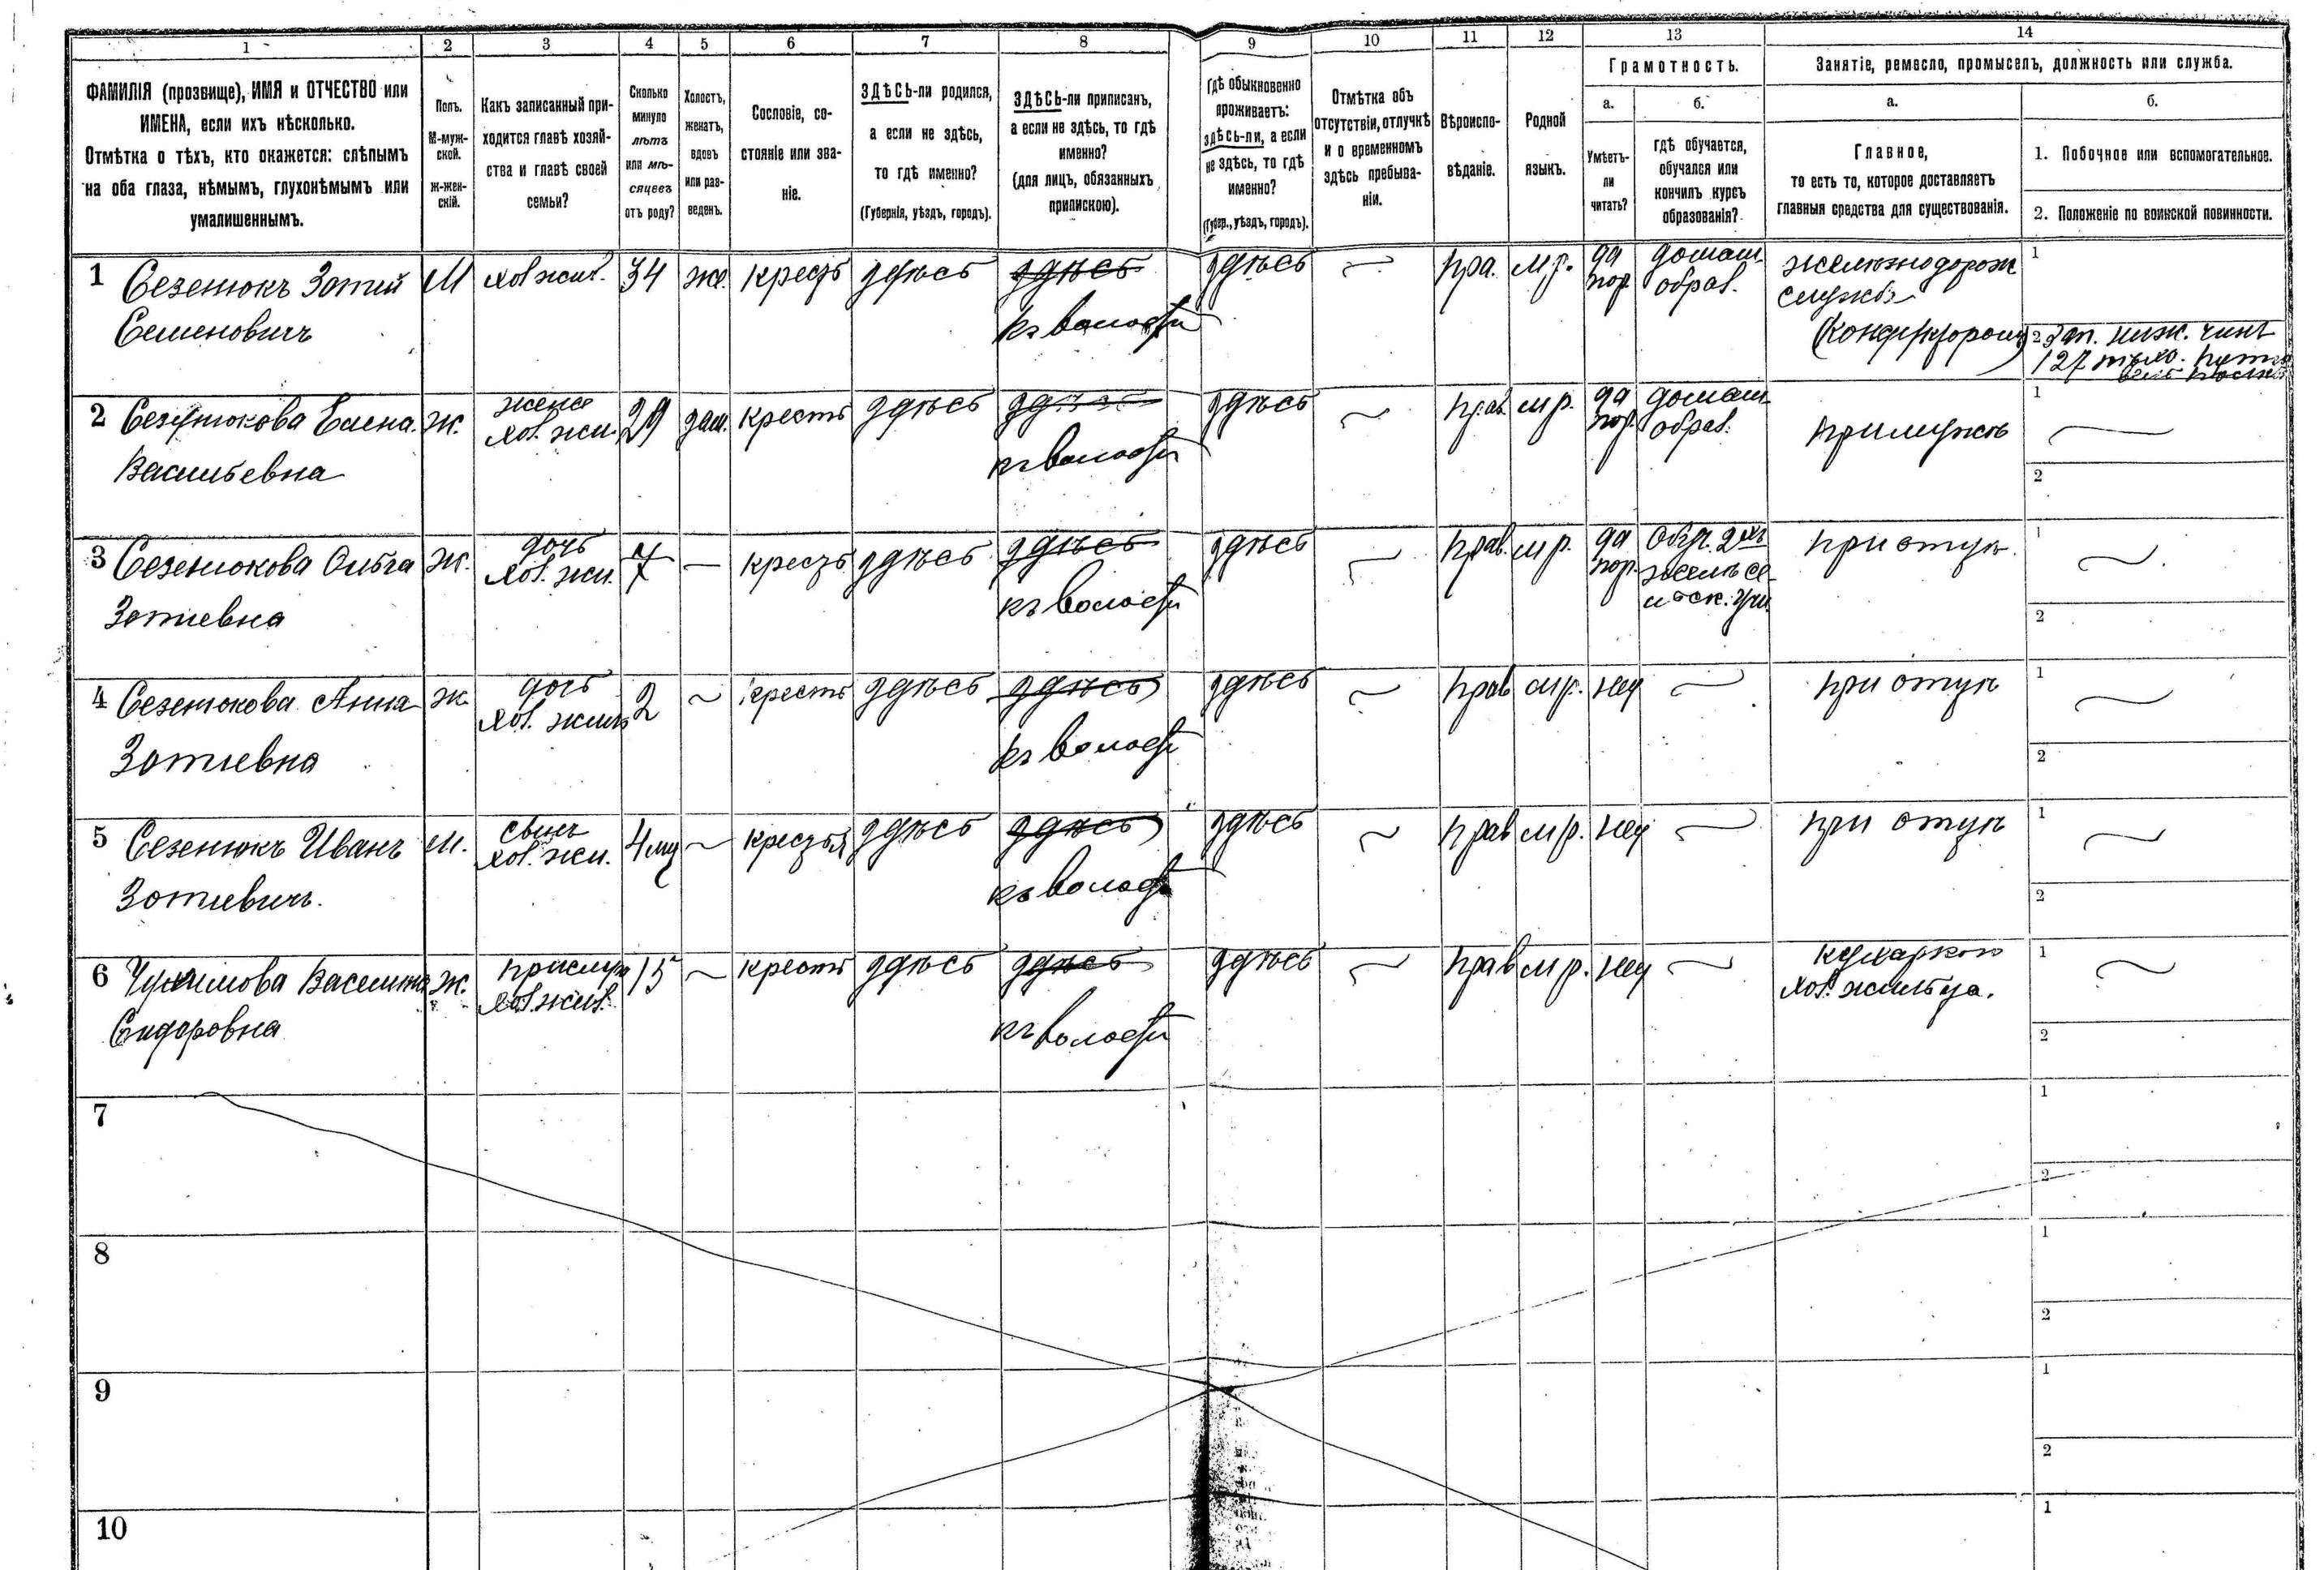 1 2 3 4 5 6 7 8 9 10 11 12 13 14
ФАМИЛІЯ (прозвище), ИМЯ и ОТЧЕСТВО или
ИМЕНА, если ихъ нѣсколько.
Отмѣтка о тѣхъ, кто окажется: слѣпымъ
на оба глаза, нѣмымъ, глухонѣмымъ или
умалишеннымъ.
Полъ.
М-муж-
ской.
Ж-жен-
скій.
Какъ записанный при-
ходится главѣ хозяй-
ства и главѣ своей
семьи?
Сколько
минуло
лѣтъ
или мѣ-
сяцевъ
отъ роду?
Холостъ,
женатъ,
вдовъ
или раз-
веденъ.
Сословіе, со-
стояніе или зва-
ніе.
ЗДѢСЬ-ли родился,
а если не здѣсь,
то гдѣ именно?
(Губернія, уѣздъ, городъ).
ЗДѢСЬ-ли приписанъ,
а если не здѣсь, то гдѣ
именно?
(для лицъ, обязанныхъ
припискою).
Гдѣ обыкновенно
проживаетъ:
здѣсь-ли, а если
не здѣсь, то гдѣ
именно?
(Губер., уѣздъ, городъ).
Отмѣтка объ
отсутствіи, отлучкѣ
и о временномъ
здѣсь пребыва-
ніи.
Вѣроиспо-
вѣданіе.
Родной
языкъ.
Грамотность.
а.
Умѣетъ-
ли
читать?
б.
гдѣ обучается,
обучался или
кончилъ курсъ
образованія?
Занятіе, ремесло, промыселъ, должность или служба.
а.
Главное,
то есть то, которое доставляетъ
главныя средства для существованія.
б.
1. Побочное или вспомогательное.
2. Положеніе по воинской повинности.
1 Сезенюкъ Зотий М хоз жил. 34 же. кресть здѣсь здѣсь здѣсь пра. м.р. да домаш. 1
Семеновичъ къ волости обраб. служба
2 Зап. ниж. чинъ
127
2 Сезенюкова Елена ж. жена 29 зам. кресть здѣсь здѣсь здѣсь прав. мр. да домаш. 1
Васильевна хоз. жи. къ волости обраб. 2
3 Сезенюкова Ольга ж. дочь 7 кресть здѣсь здѣсь здѣсь прав. мр. да при отцѣ 1
Зотиевна хоз. жи. къ волости 2
4 Сезенюкова Анна ж. дочь 2 кресть здѣсь здѣсь здѣсь прав м.р. нет при отцѣ 1
Зотиевна хоз. жил. къ волости 2
5 Сезенюкъ Иванъ м. сынъ 4 кресть здѣсь здѣсь здѣсь прав мр. нет при отцѣ 1
Зотиевичъ. хоз. жи. къ волости 2
6 ж. прислуга 15 кресть здѣсь здѣсь здѣсь прав м.р. нет кухаркою 1
Сидоровна хоз. жил. къ волости хоз. жильца. 2
7 1
2
8 1
2
9 1
2
10 1